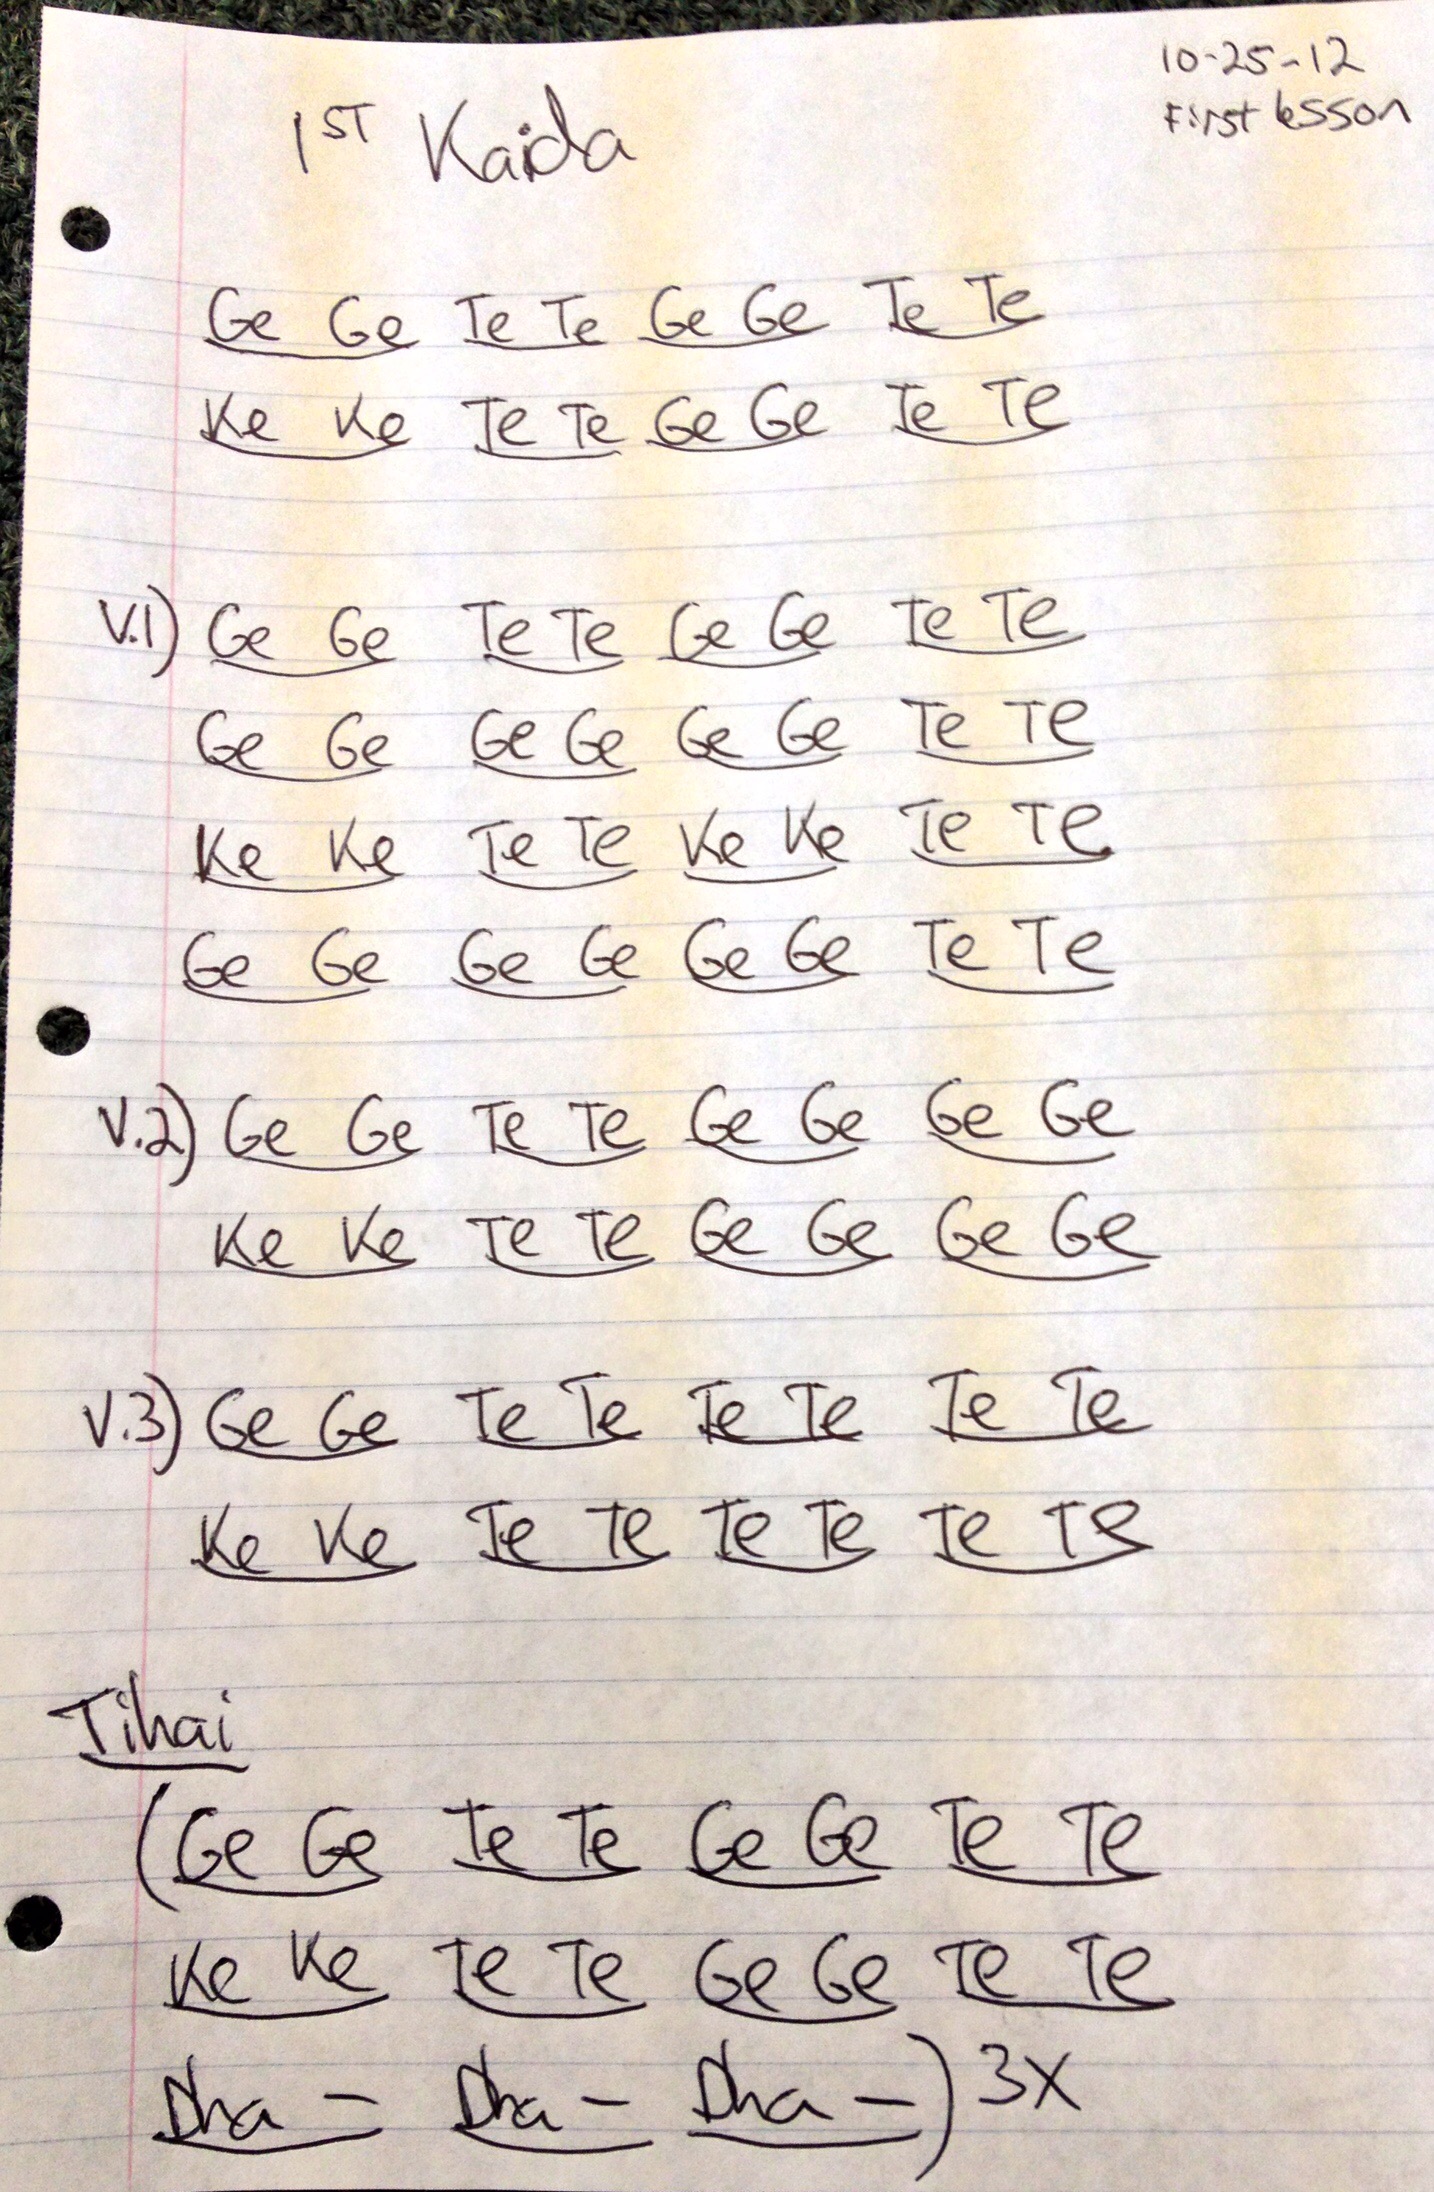 10-25-12
First lesson
1ST Kaida
Ge Ge Te Te Ge Ge Te Te
Ke Ke Te Te Ge Ge Te Te
V.1) Ge Ge Te Te Ge Ge Te Te
Ge Ge Ge Ge Ge Ge Te Te
Ke Ke Te Te Ke Ke Te Te
Ge Ge Ge Ge Ge Ge Te Te
V.2) Ge Ge Te Te Ge Ge Ge Ge
Ke Ke Te Te Ge Ge Ge Ge
V.3) Ge Ge Te Te Te Te Te Te
Ke Ke Te Te Te Te Te Te
Tihai
(Ge Ge Te Te Ge Ge Te Te
Ke Ke Te Te Ge Ge Te Te
Dha - Dha - Dha -) 3X